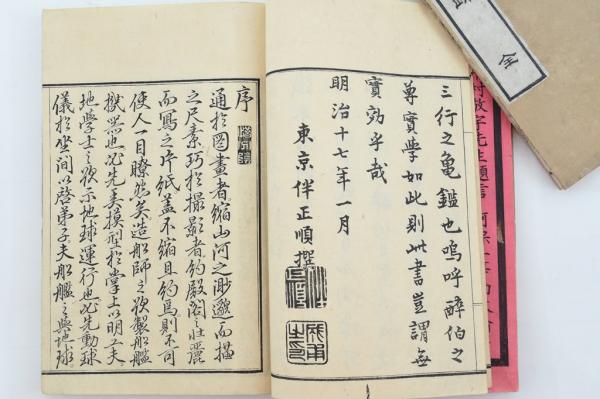 三行之亀鑑也嗚呼醉伯之
尊實學如此則此書豈謂無
實効乎哉
明治十七年一月
東京伴正順撰
序
通於圖畫者縮山河之渺邈而描
之尺素巧於撮影者約殿閣之壯麗
而寫之片紙蓋不縮且約焉則不可
使人一目瞭然矣造船師之欲製船艦
機器也必先摸型於掌上以明工夫
地學士之欲示地球運行也必先動球
儀於坐間以啓弟子夫船艦之與地球
全